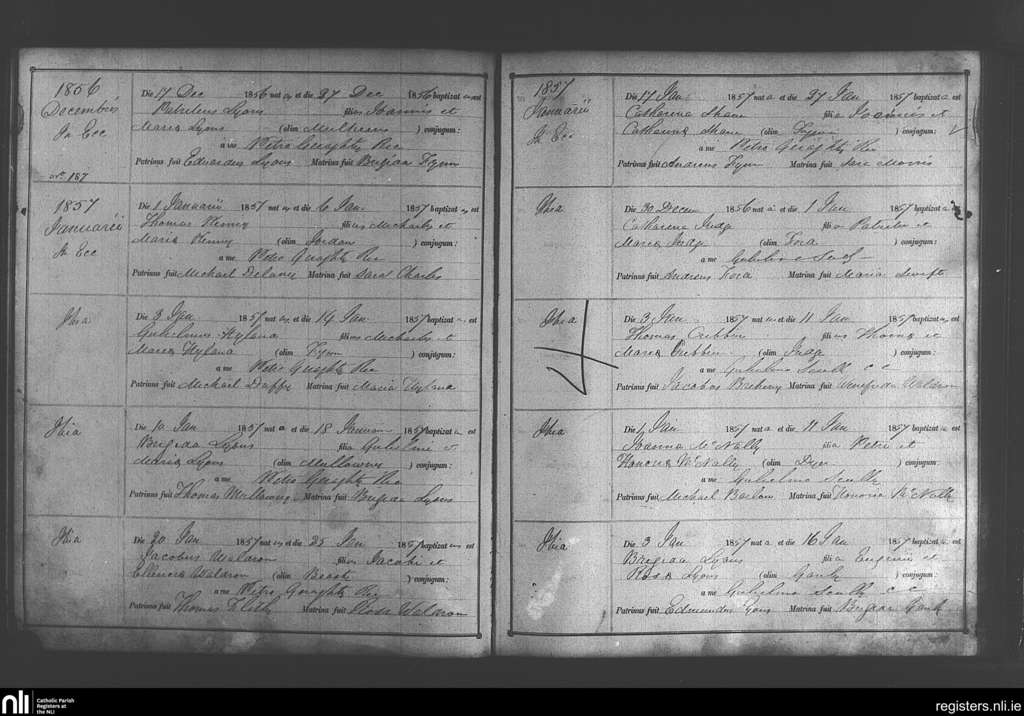 1856
Decembris
In Ecc
Die 17 Dec 1856 nat us et die 27 Dec 1856 baptizat us est
Patritius Lyons filius Joannis et
Maria Lyons (olim ) conjugum:
a me Petro Geraghty
Patrinus fuit Eduardus Lyons Matrina fuit Brigida Flynn
No. 187
1857
Januarii
In Ecc
Die 1 Januarii 1857 nat us et die 6 Jan 1857 baptizat us est
Thomas filius Michaelis et
Maria (olim Jordan ) conjugum:
a me Petro Geraghty
Patrinus fuit Michael Delany Matrina fuit Sarah Charles
Ibia
Die 3 Jan 1857 nat us et die 14 Jan 1857 baptizat us est
Gulielmus Hyland filius Michaelis et
Maria Hyland (olim Flynn ) conjugum:
a me Petro Geraghty
Patrinus fuit Michael Duffy Matrina fuit Maria Hyland
Ibia
Die 10 Jan 1857 nat a et die 18 Januar 1857 baptizat a est
Brigida Lyons filia Gulielmi et
Maria Lyons (olim ) conjugum:
a me Petro Geraghty
Patrinus fuit Thomas Matrina fuit Brigida Lyons
Ibia
Die 20 Jan 1857 nat us et die 25 Jan 1857 baptizat us est
Jacobus Waldron filius Jacobi et
Ellenora Waldron (olim ) conjugum:
a me Petro Geraghty
Patrinus fuit Thomas Matrina fuit Waldron
1857
Januarii
In Ecc
Die 17 Jan 1857 nat a et die 27 Jan 1857 baptizat a est
Catharina filia Joannis et
Catharina (olim ) conjugum:
a me Petro Geraghty
Patrinus fuit Andreas Flynn Matrina fuit Sara Morris
Ibia
Die 30 Decem 1856 nat a et die 1 Jan 1857 baptizat a est
Catharina Judge filia Patritii et
Maria Judge (olim ) conjugum:
a me Gulielmo
Patrinus fuit Andreas Matrina fuit Maria Swift
Ibia
Die 3 Jan 1857 nat us et die 11 Jan 1857 baptizat us est
Thomas Cribbin filius Thoma et
Maria Cribbin (olim Judge ) conjugum:
a me Gulielmo Scully c c
Patrinus fuit Jacobus Matrina fuit Winefrida Waldron
Ibia
Die 4 Jan 1857 nat a et die 11 Jan 1857 baptizat a est
Joanna McNally filia Petri et
Honoria McNally (olim Dyer ) conjugum:
a me Gulielmo Scully
Patrinus fuit Michael Matrina fuit Honoria McNally
Ibia
Die 3 Jan 1857 nat a et die 16 Jan 1857 baptizat a est
Brigida Lyons filia Eugenii et
Rosa Lyons (olim ) conjugum:
a me Gulielmo Scully c c
Patrinus fuit Edmundus Lyons Matrina fuit Brigida
nli
Catholic Parish
Registers at
the NLI
registers.nli.ie